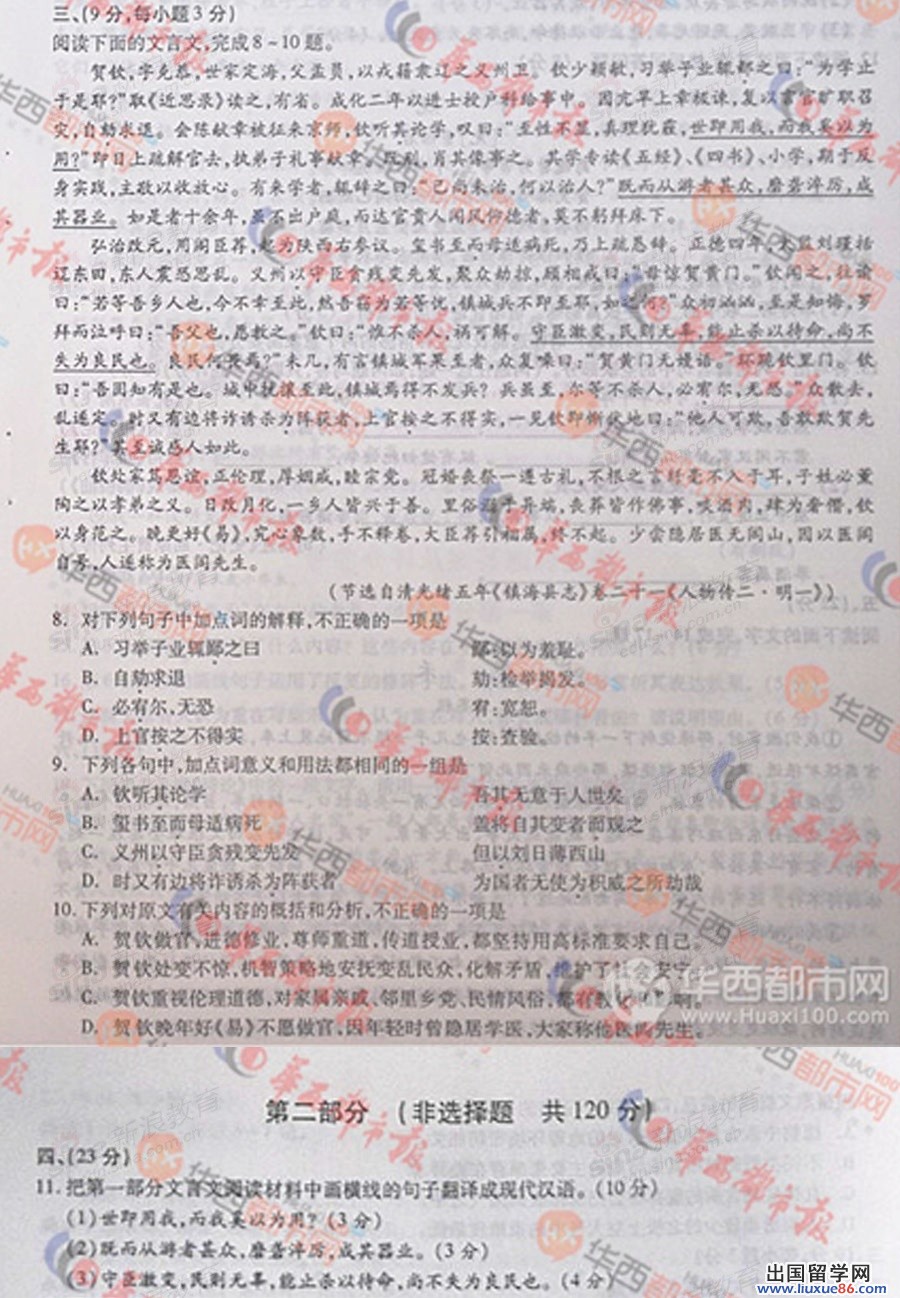 三、(9分,每小题3分)
阅读下面的文言文,完成8~10题。
贺钦,字克恭,世家定海,父孟员,以戎籍隶辽之义州卫。钦少颖敏,习举子业辄鄙之曰:“为学止
于是耶?”取《近思录》读之,有省。成化二年以进士授户科给事中。因亢旱上章极谏,复以言官旷职召
灾,自劾求退。会陈献章被征来京师,钦听其论学,叹曰:“至性不显,真理犹霾,世即用我,而我奚以为
用?”即日上疏解官去,执弟子礼事献章。既别,肖其像事之。其学专读《五经》、《四书》、小学,期于反
身实践,主敬以收放心。有来学者,辄辞之曰:“己尚未治,何以治人?”既而从游者甚众,磨砻淬厉,成
其器业。如是者十余年,足不出户庭,而达官贵人闻风仰德者,莫不躬拜床下。
弘治改元,用阁臣荐,起为陕西右参议。玺书至而母适病死,乃上疏恳辞。正德四年,太监刘瑾括
辽东田,东人震恐思乱。义州以守臣贪残变先发,聚众劫掠,顾相戒曰:“毋惊贺黄门。”钦闻之,往谕
曰:“若等吾乡人也,今不幸至此,然吾窃为若等忧,镇城兵不即至耶,如之何?”众初汹汹,至是知悔,罗
拜而泣呼曰:“吾父也,愿教之。”钦曰:“惟不杀人,祸可解。守臣激变,民则无辜,能止杀以待命,尚不
失为良民也。良民何畏焉?”未几,有言镇城军果至者,众复噪曰:“贺黄门无嫚语。”环跪钦里门。钦
曰:“吾固知有是也。城中扰攘至此,镇城焉得不发兵?兵虽至,尔等不杀人,必宥尔,无恐。”众散去,
乱遂定。时又有边将诈诱杀为阵获者,上官按之不得实,一见钦即惭伏地曰:“他人可欺,吾敢欺贺先
生耶?”其至诚感人如此。
钦处家笃恩谊,正伦理,厚姻戚,睦宗党。冠婚丧祭一遵古礼,不根之言纤毫不入于耳,子姓必董
陶之以孝弟之义。日改月化,一乡人皆兴于善。里俗溺于异端,丧葬皆作佛事,啖酒肉,肆为奢僭,钦
以身范之。晚更好《易》,究心象数,手不释卷,大臣荐引相属,终不起。少尝隐居医无闾山,因以医闾
自号,人遂称为医闾先生。
(节选自清光绪五年《镇海县志》卷二十一《人物传二·明一》)
8. 对下列句子中加点词的解释,不正确的一项是
A. 习举子业辄鄙之曰 鄙:以为羞耻。
B. 自劾求退 劾:检举揭发。
C. 必宥尔,无恐 宥:宽恕。
D. 上官按之不得实 按:查验。
9. 下列各句中,加点词意义和用法都相同的一组是
A. 钦听其论学 吾其无意于人世矣
B. 玺书至而母适病死 盖将自其变者而观之
C. 义州以守臣贪残变先发 但以刘日薄西山
D. 时又有边将诈诱杀为阵获者 为国者无使为积威之所劫哉
10. 下列对原文有关内容的概括和分析,不正确的一项是
A. 贺钦做官,进德修业,尊师重道,传道授业,都坚持用高标准要求自己。
B. 贺钦处变不惊,机智策略地安抚变乱民众,化解矛盾,维护了社会安宁。
C. 贺钦重视伦理道德,对家属亲戚、邻里乡党、民情风俗,都有教化
D. 贺钦晚年好《易》不愿做官,因年轻时曾隐居学医,大家称他医闾先生。
华西都市网
www.Huaxi100.com
第二部分 (非选择题 共120分)
四、(23分)
11. 把第一部分文言文阅读材料中画横线的句子翻译成现代汉语。(10分)
(1)世即用我,而我奚以为用?(3分)
(2)既而从游者甚众,磨砻淬厉,成其器业。(3分)
(3)守臣激变,民则无辜,能止杀以待命,尚不失为良民也。(4分)
出国留学网
www.liuxue86.com